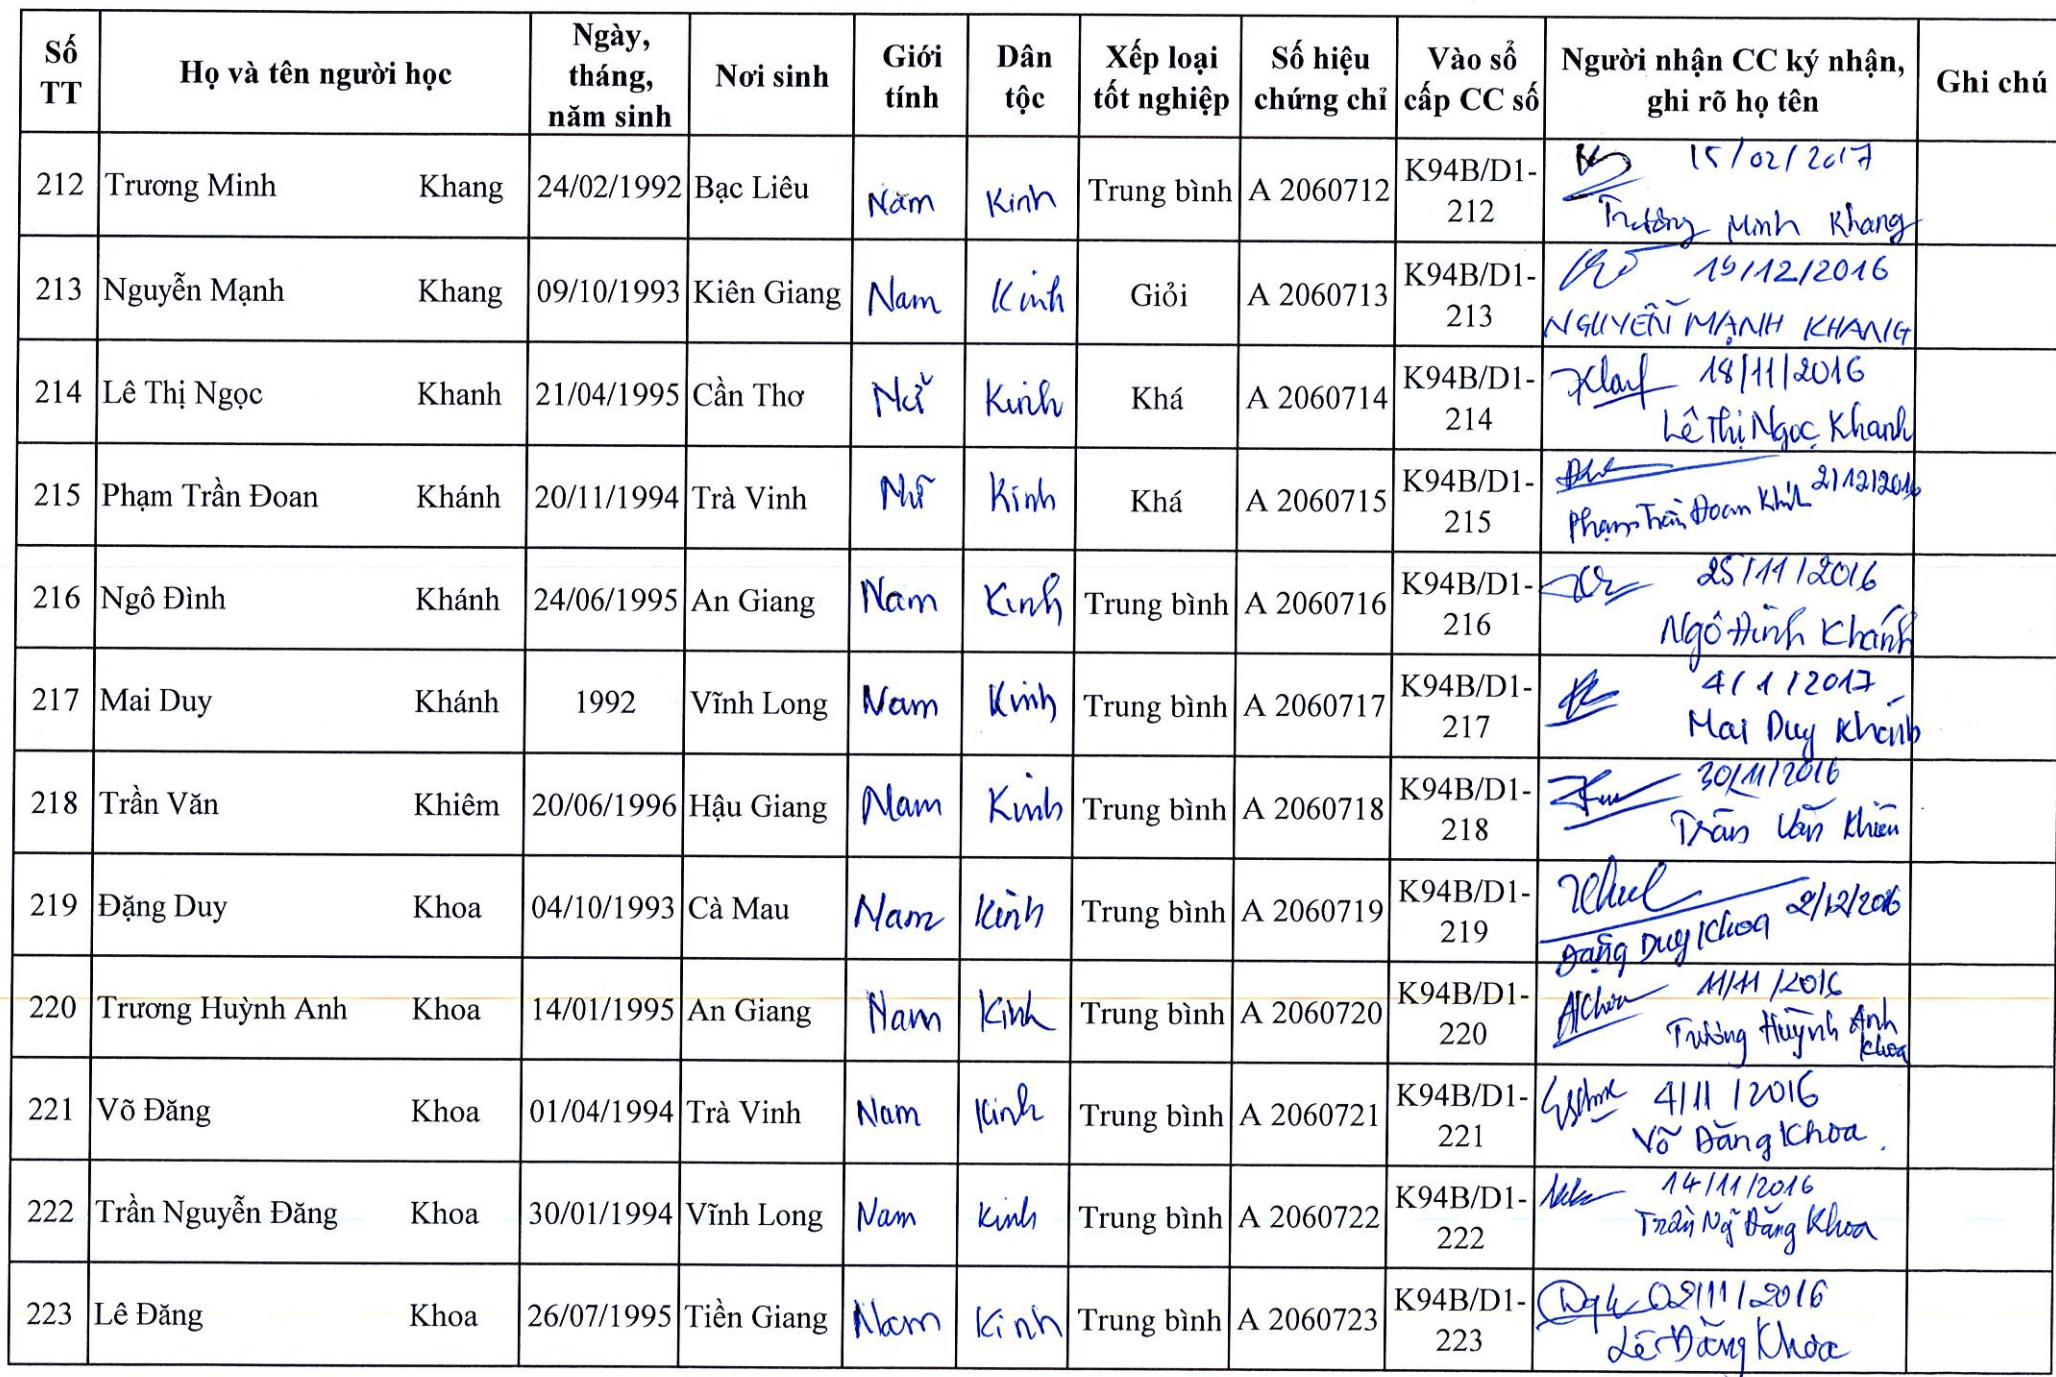 Số TT Họ và tên người học Ngày, tháng, năm sinh Nơi sinh Giới tính Dân tộc Xếp loại tốt nghiệp Số hiệu chứng chỉ Vào sổ cấp CC số Người nhận CC ký nhận, ghi rõ họ tên Ghi chú
212 Trương Minh Khang 24/02/1992 Bạc Liêu Nam Kinh Trung bình A 2060712 K94B/D1-212 15/02/2017
Trương Minh Khang
213 Nguyễn Mạnh Khang 09/10/1993 Kiên Giang Nam Kinh Giỏi A 2060713 K94B/D1-213 19/12/2016
NGUYỄN MẠNH KHANG
214 Lê Thị Ngọc Khanh 21/04/1995 Cần Thơ Nữ Kinh Khá A 2060714 K94B/D1-214 18/11/2016
Lê Thị Ngọc Khanh
215 Phạm Trần Đoan Khánh 20/11/1994 Trà Vinh Nữ Kinh Khá A 2060715 K94B/D1-215 2/12/2016
Phạm Trần Đoan Khánh
216 Ngô Đình Khánh 24/06/1995 An Giang Nam Kinh Trung bình A 2060716 K94B/D1-216 25/11/2016
Ngô Đình Khánh
217 Mai Duy Khánh 1992 Vĩnh Long Nam Kinh Trung bình A 2060717 K94B/D1-217 4/1/2017
Mai Duy Khánh
218 Trần Văn Khiêm 20/06/1996 Hậu Giang Nam Kinh Trung bình A 2060718 K94B/D1-218 30/11/2016
Trần Văn Khiêm
219 Đặng Duy Khoa 04/10/1993 Cà Mau Nam Kinh Trung bình A 2060719 K94B/D1-219 2/12/2016
Đặng Duy Khoa
220 Trương Huỳnh Anh Khoa 14/01/1995 An Giang Nam Kinh Trung bình A 2060720 K94B/D1-220 11/11/2016
Trương Huỳnh Anh Khoa
221 Võ Đăng Khoa 01/04/1994 Trà Vinh Nam Kinh Trung bình A 2060721 K94B/D1-221 4/11/2016
Võ Đăng Khoa.
222 Trần Nguyễn Đăng Khoa 30/01/1994 Vĩnh Long Nam Kinh Trung bình A 2060722 K94B/D1-222 14/11/2016
Trần Ng̃ Đăng Khoa
223 Lê Đăng Khoa 26/07/1995 Tiền Giang Nam Kinh Trung bình A 2060723 K94B/D1-223 02/11/2016
Lê Đăng Khoa